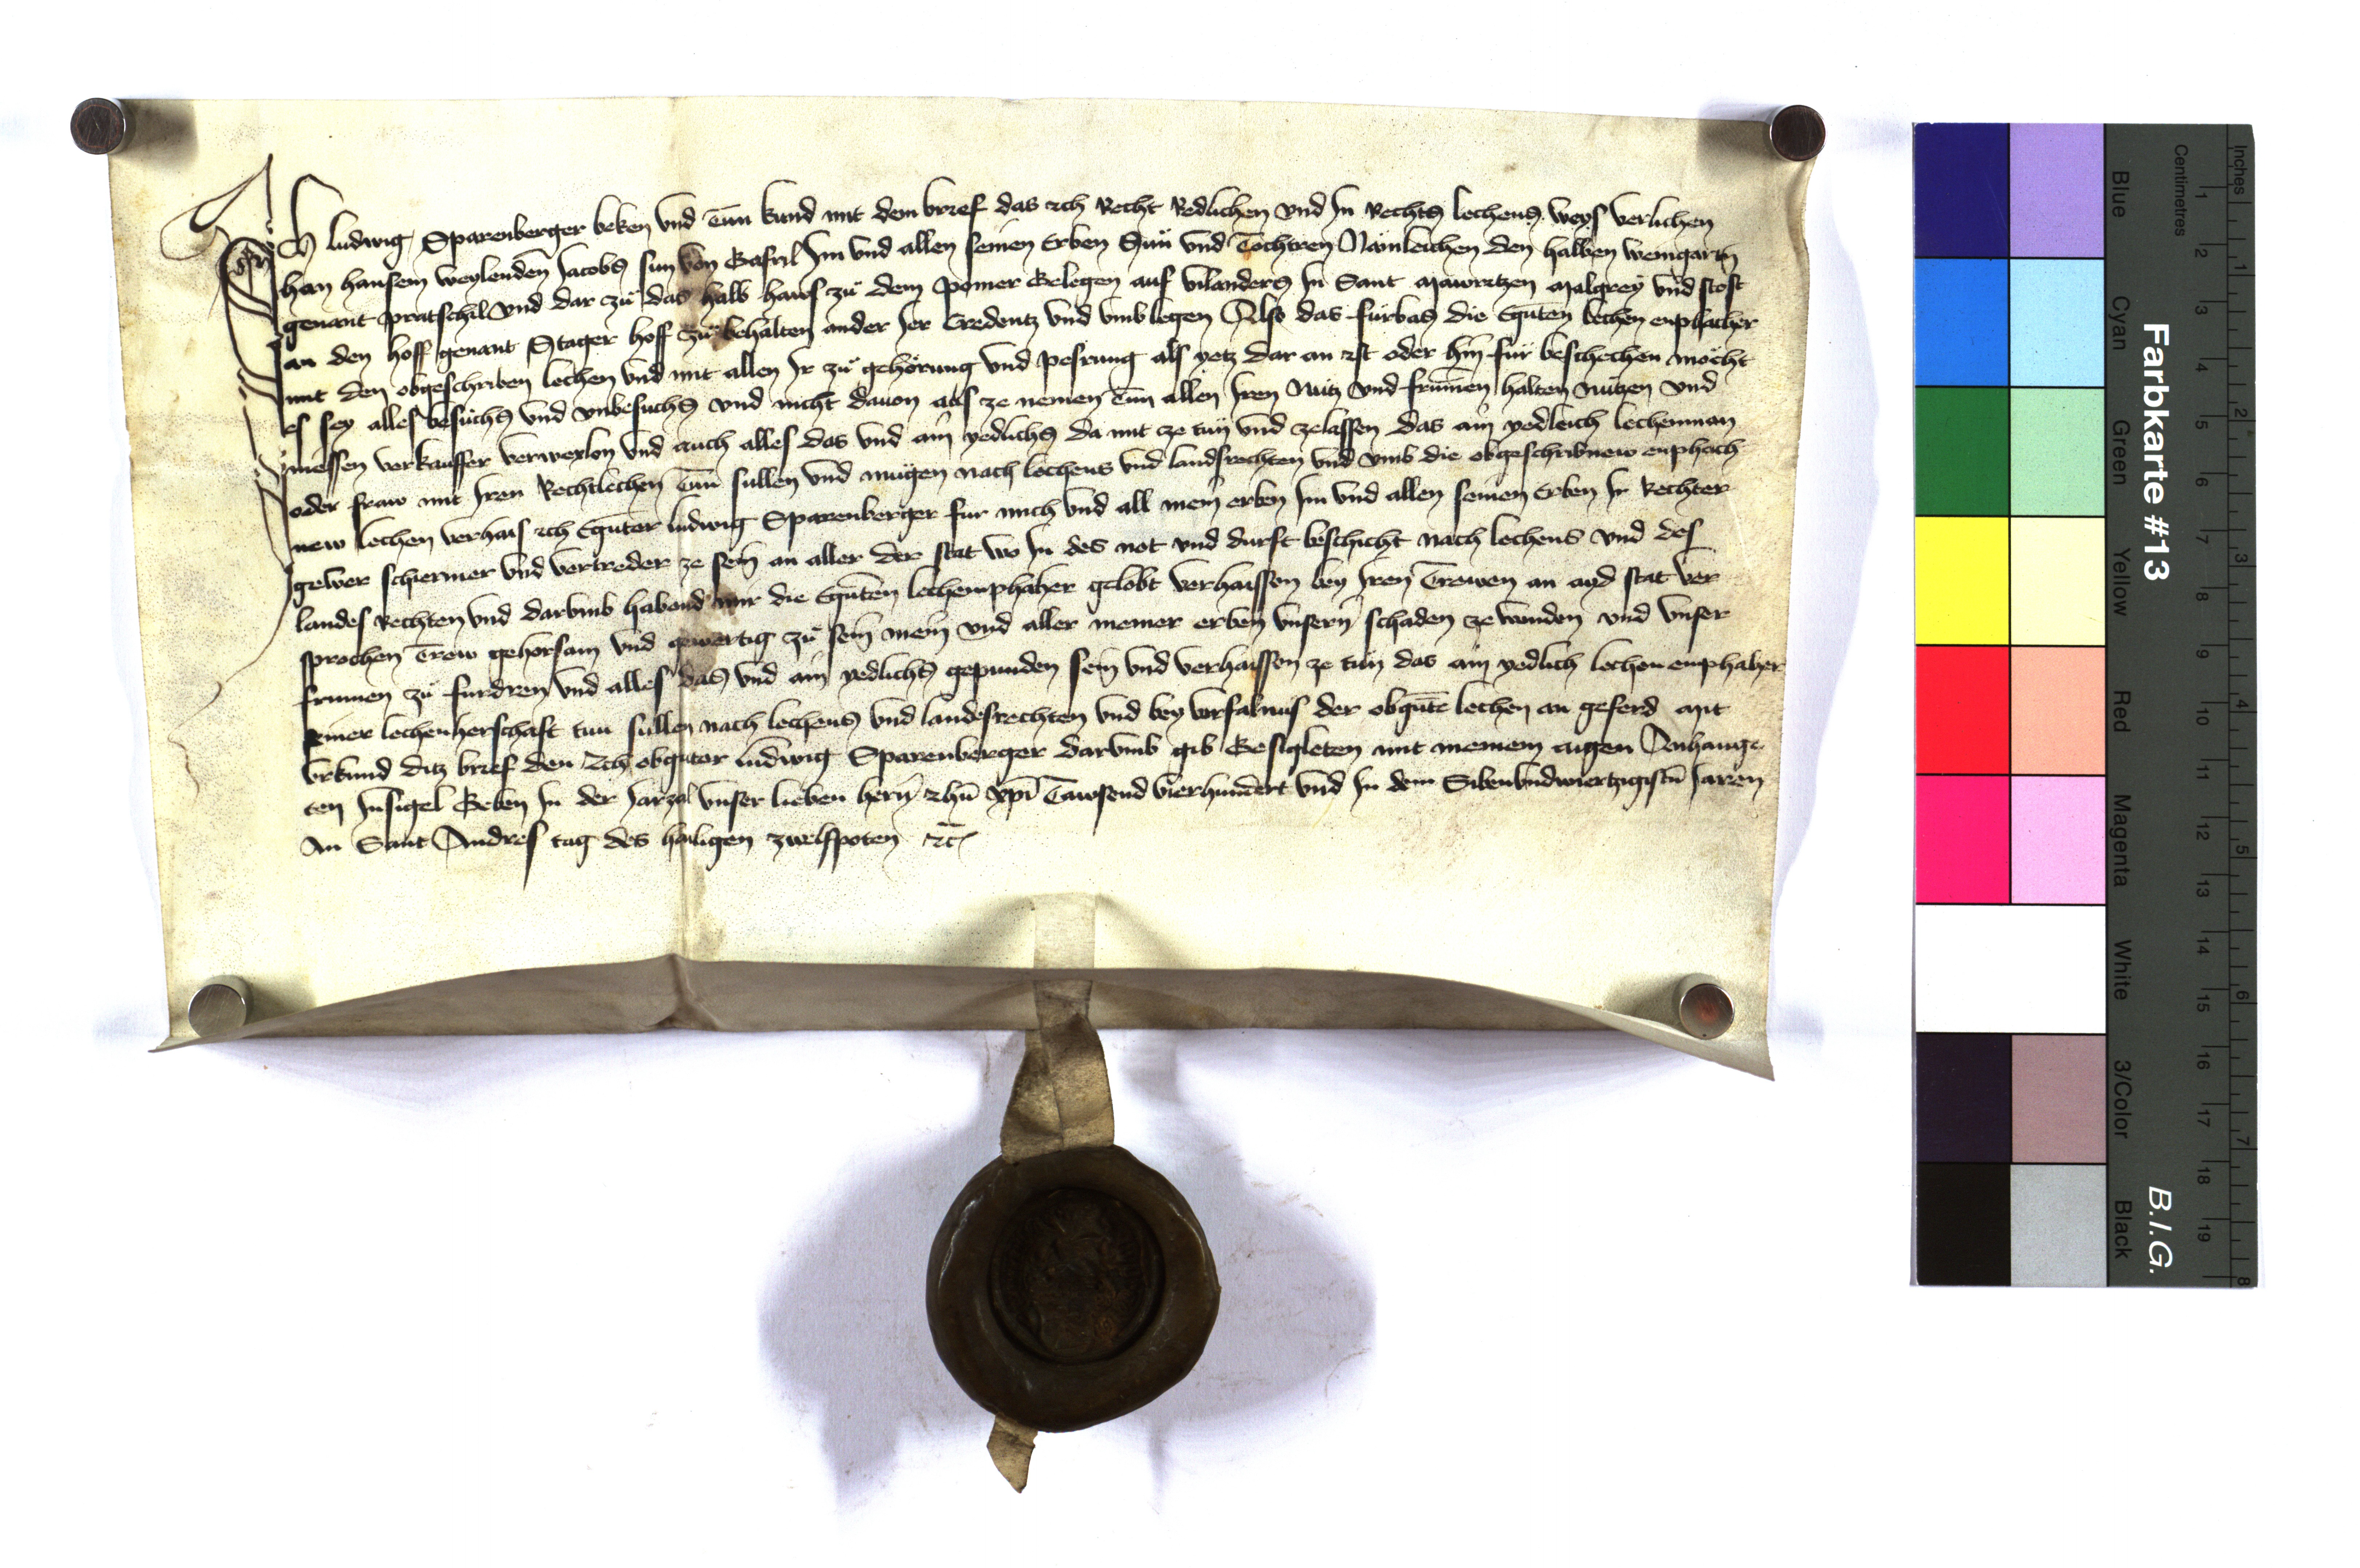 Ich ludwig Sparenberger beken vnd Tun kund mit dem brief das ich Recht Redlichen vnd In Rechts lechens weys verlichen
han hansem weylenden Jacobs sun von Gafril Im vnd allen seinen Erben Sün vnd Tochtren Nämleichen den halben weingartn
genant pratschil vnd dar zü das halb haws zü dem pomer Gelegen auf vilanders In Sant Mawritzen Malgrey vnd stost
an den hoff genant Stager hoff zü behalten ander Jer Credentz vnd vmb legen Also das fürbas die Eguten lechen enphacher
mit den obgeschriben lechen vnd mit allen Ir zü gehörung vnd pesrung als yetz dar an ist oder hin für beschechen möcht
es sey alles besuchs vnd vnbesuchs vnd nicht dauon aus ze nemen Tün allen Iren Nutz vnd frumen halten nützen vnd
niessen verkauffer verwexlon vnd auch alles das vnd ain yedlichs da mit ze tun vnd zelassen das ain yedleich lechenman
oder fraw mit Iren Rechtlechen Tun sullen vnd mugen nach lechens vnd landsrechten vnd vmb die obgeschribnew enphach
new lechen verhais ich Eguter ludwig Sparenberger fur mich vnd all mein erben Im vnd allen seinen Erben Ir Rechter
gewer schiermer vnd vertreder ze sein an aller der stat wo In des not vnd durft beschicht nach lechens vnd des
landes Rechten vnd darvmb habend mir die Eguten lechemphaher gelobt verhaissen bey Iren Trewen an ayd stat ver
sprochen Trew gehorsam vnd gewertig zü sein mein vnd aller meiner erben vnsern schaden ze wenden vnd vnser
frumen zü furdren vnd alles das vnd ain yedlichs gepunden sein vnd verhaissen ze tun das ain yedlich lechen emphaher
seiner lechenherschaft tun sullen nach lechens vnd landesrechten vnd bey vorfalnus der obgute lechen an geferd Mit
vrkund ditz brief den Ich obguter ludwig Sparenberger darvmb gib Gesigleten mit meinem aigen Anhange
ten Insigel Geben In der Jarzal vnser lieben hern Ihu xpi Tawsend vierhundert vnd In dem Sibenvndwiertzigistn Jaren
An Sant Andres tag des hailigen zwelfpoten etc
Farbkarte #13
B.I.G.
Centimetres
Inches
Blue
Cyan
Green
Yellow
Red
Magenta
White
3/Color
Black
1 2 3 4 5 6 7 8 9 10 11 12 13 14 15 16 17 18 19
1 2 3 4 5 6 7 8